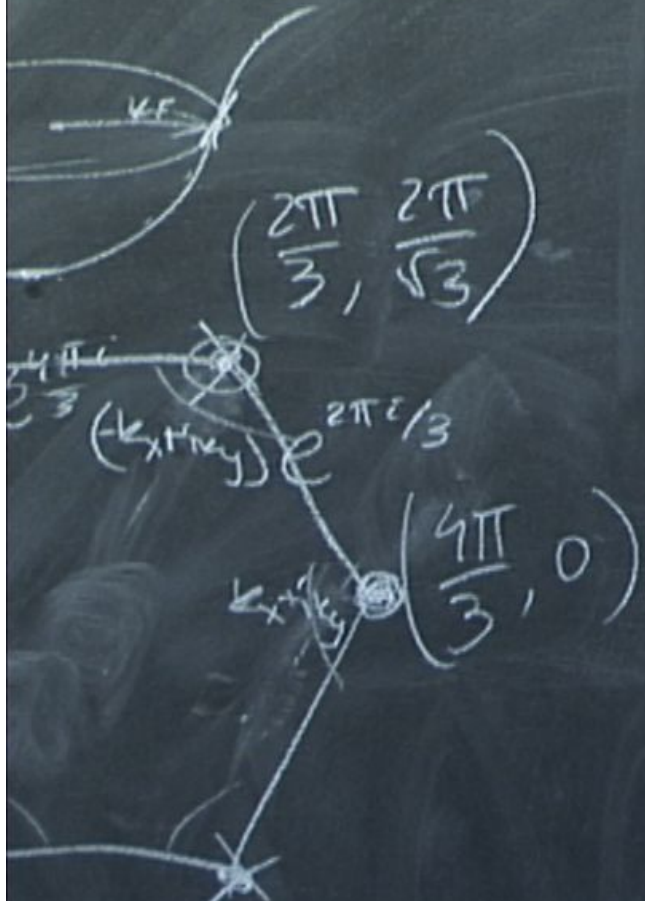 kF
(2π/3, 2π/√3)
e^{4πi/3}
(-kx+iky) e^{2πi/3}
kx+iky
(4π/3, 0)